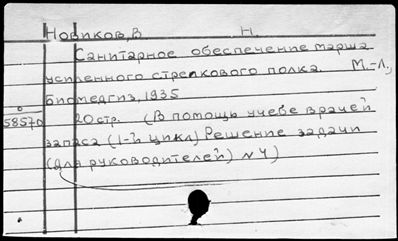 Новиков, В Н.
Санитарное обеспечение марша
усиленного стрелкового полка. М.-Л.,
Биомедгиз, 1935
58570 20 стр. (В помощь учебе врачей
запаса (1-й цикл) Решение задачи
(для руководителей) №4)